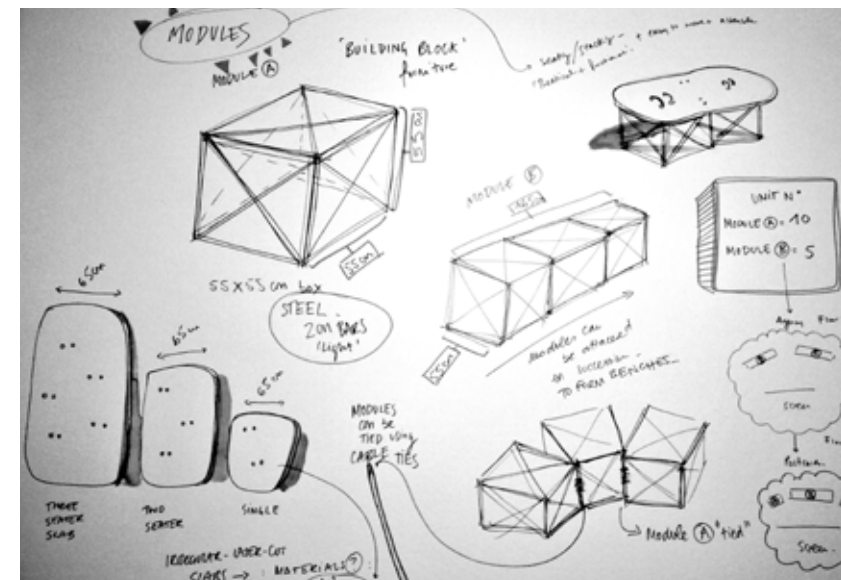 MODULES
MODULE A
"BUILDING BLOCK"
furniture
55 cm
55 cm
55X55 cm box
STEEL
"Light"
MODULE B
165 cm
55 cm
modules can
be attached
in succession
TO FORM BENCHES
UNIT N°
MODULE A = 10
MODULE B = 5
65cm
65cm
65cm
THREE
SEATER
SLAB
TWO
SEATER
SINGLE
MODULES
can be
TIED using
CABLE TIES
Module A "tied"
Screen
Screen
IRREGULAR - LASER-CUT
SLABS → : MATERIALS ?